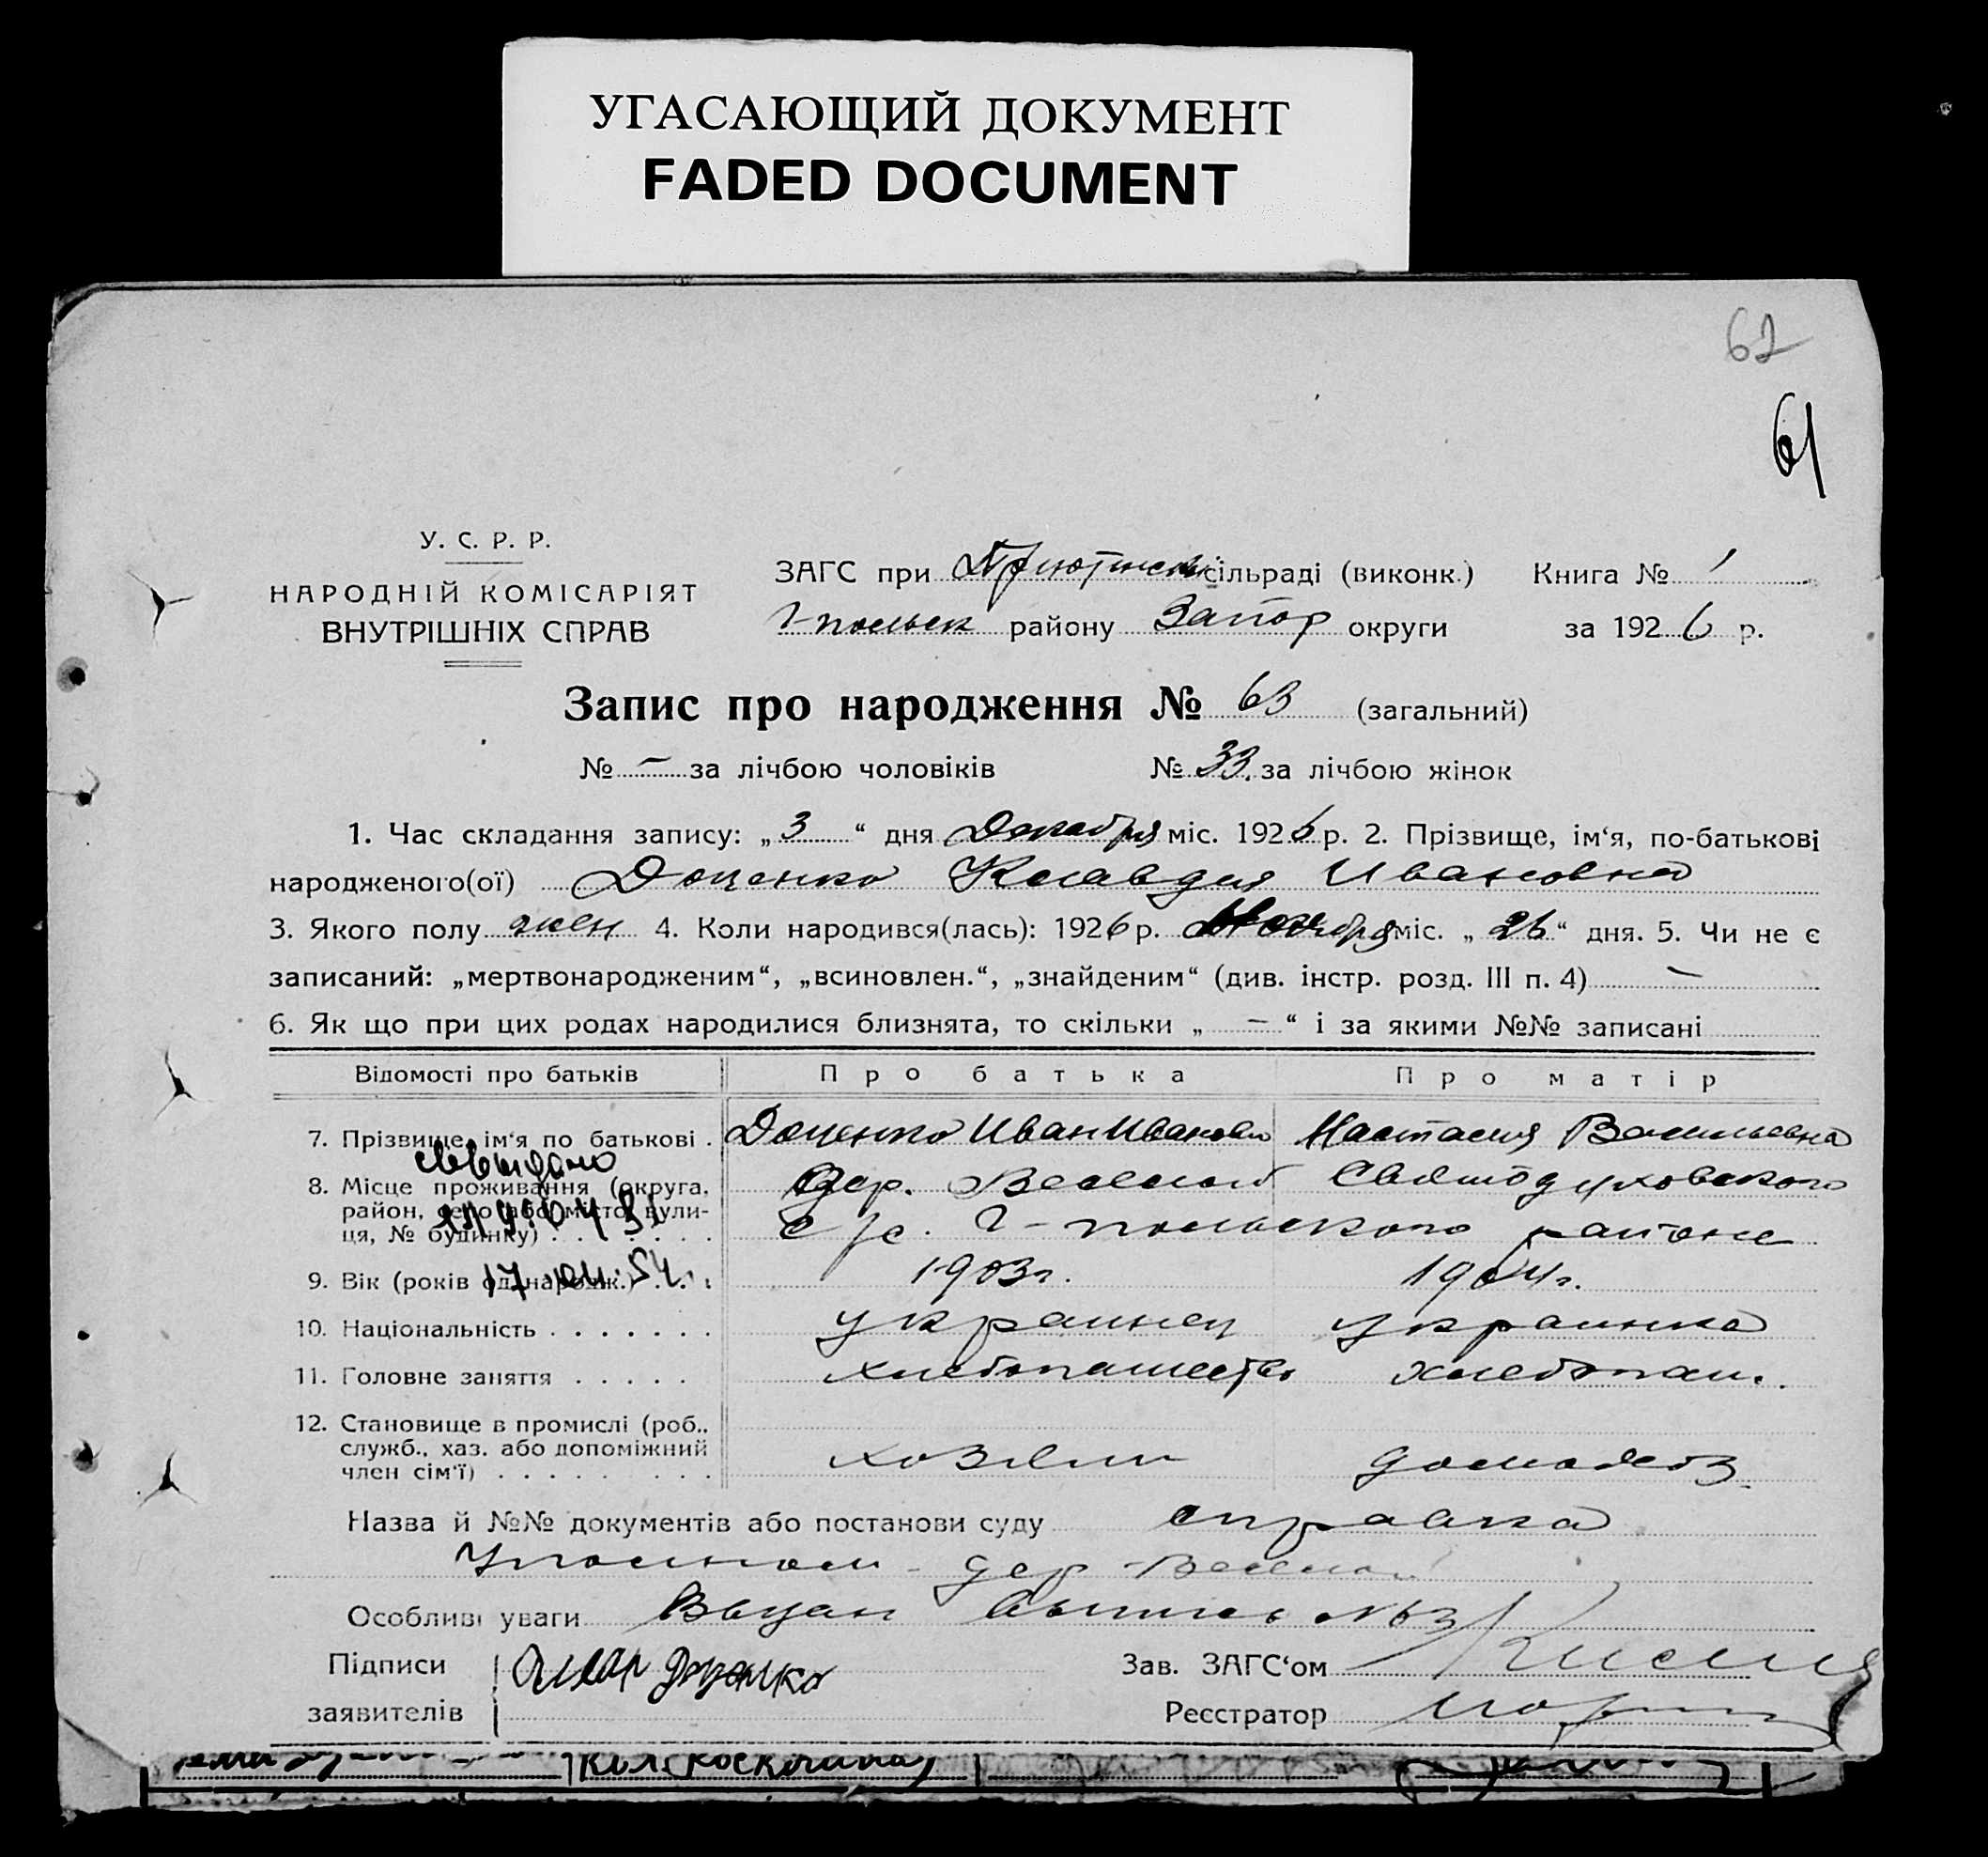 УГАСАЮЩИЙ ДОКУМЕНТ
FADED DOCUMENT
62
61
У. С. Р. Р.
НАРОДНІЙ КОМІСАРІЯТ
ВНУТРІШНІХ СПРАВ
ЗАГС при сільраді (виконк.) Книга № 1
Г-польск району Запор округи за 1926 р.
Запис про народження № 63 (загальний)
№ — за лічбою чоловіків № 33. за лічбою жінок
1. Час складання запису: „3“ дня Декабря міс. 1926 р. 2. Прізвище, ім‘я, по-батькові
народженого(ої) Доценко Клавдия Ивановна
3. Якого полу жен 4. Коли народився(лась): 1926 р. Ноября міс. „26“ дня. 5. Чи не є
записаний: „мертвонародженим“, „всиновлен.“, „знайденим“ (див. інстр. розд. III п. 4) —
6. Як що при цих родах народилися близнята, то скільки „ — “ і за якими №№ записані
Відомості про батьків Про батька Про матір
7. Прізвище, ім‘я по батькові . Доценко Иван Иванович Настасия Васильевна
8. Місце проживання (округа, район, село або місто, вулиця, № будинку) . . . . . . . Дер. Веселой Святодуховского
с/с. Г-польского района
9. Вік (років од народж.) . . . 1903г. 1904г.
17 54
10. Національність . . . . . . . украинец украинка
11. Головне заняття . . . . . хлебопашество хлебопаш.
12. Становище в промислі (роб.,
служб., хаз. або допоміжний
член сім‘ї) . . . . . . . . хозяин домохоз.
Назва й №№ документів або постанови суду справка
Уполном. дер Веселой
Особливі уваги Выдан выпись №63
Підписи Иван Доценко Зав. ЗАГС‘ом
заявителів Реєстратор